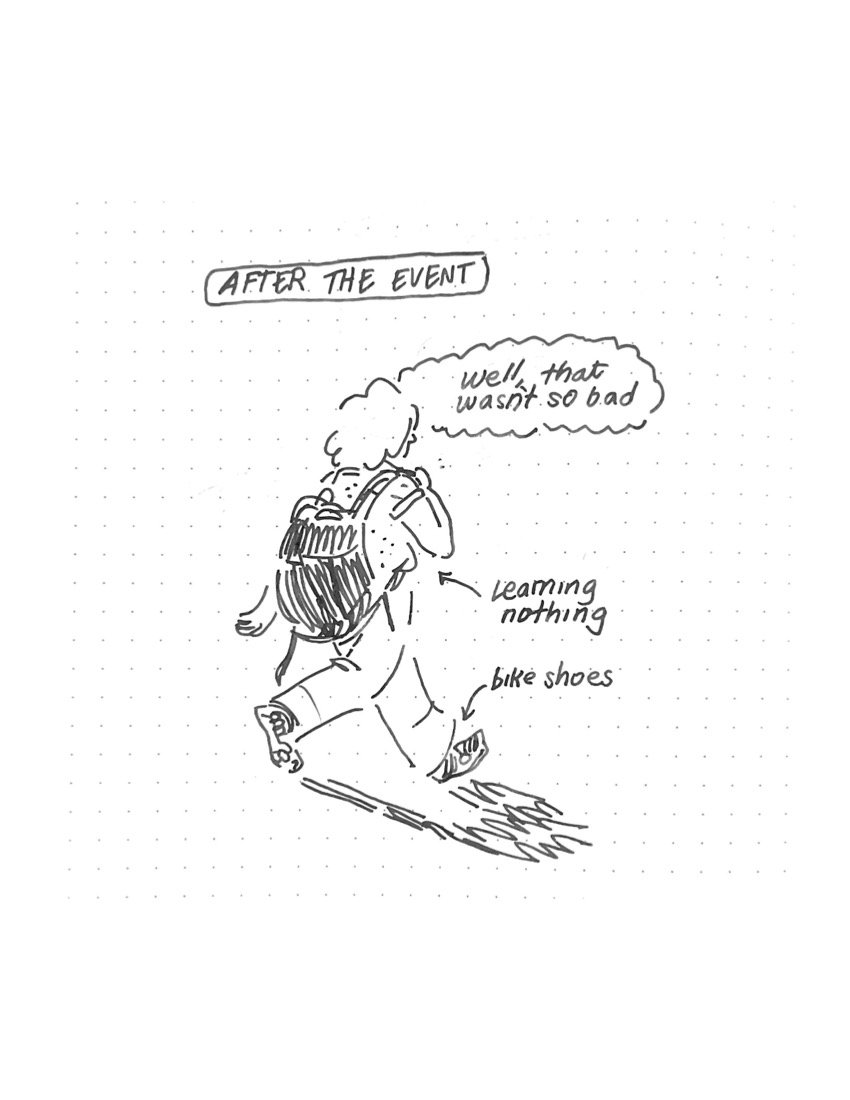 AFTER THE EVENT
well, that
wasn't so bad
Learning
nothing
bike shoes